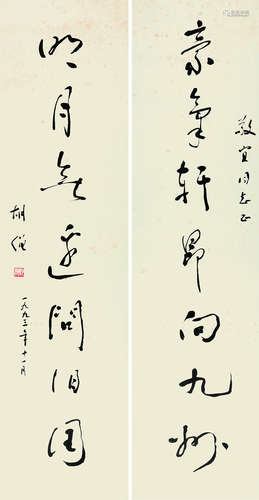 敬宜同志正
豪氣軒昂向九州
明月無邊問旧国
胡绳
一九九三年十一月